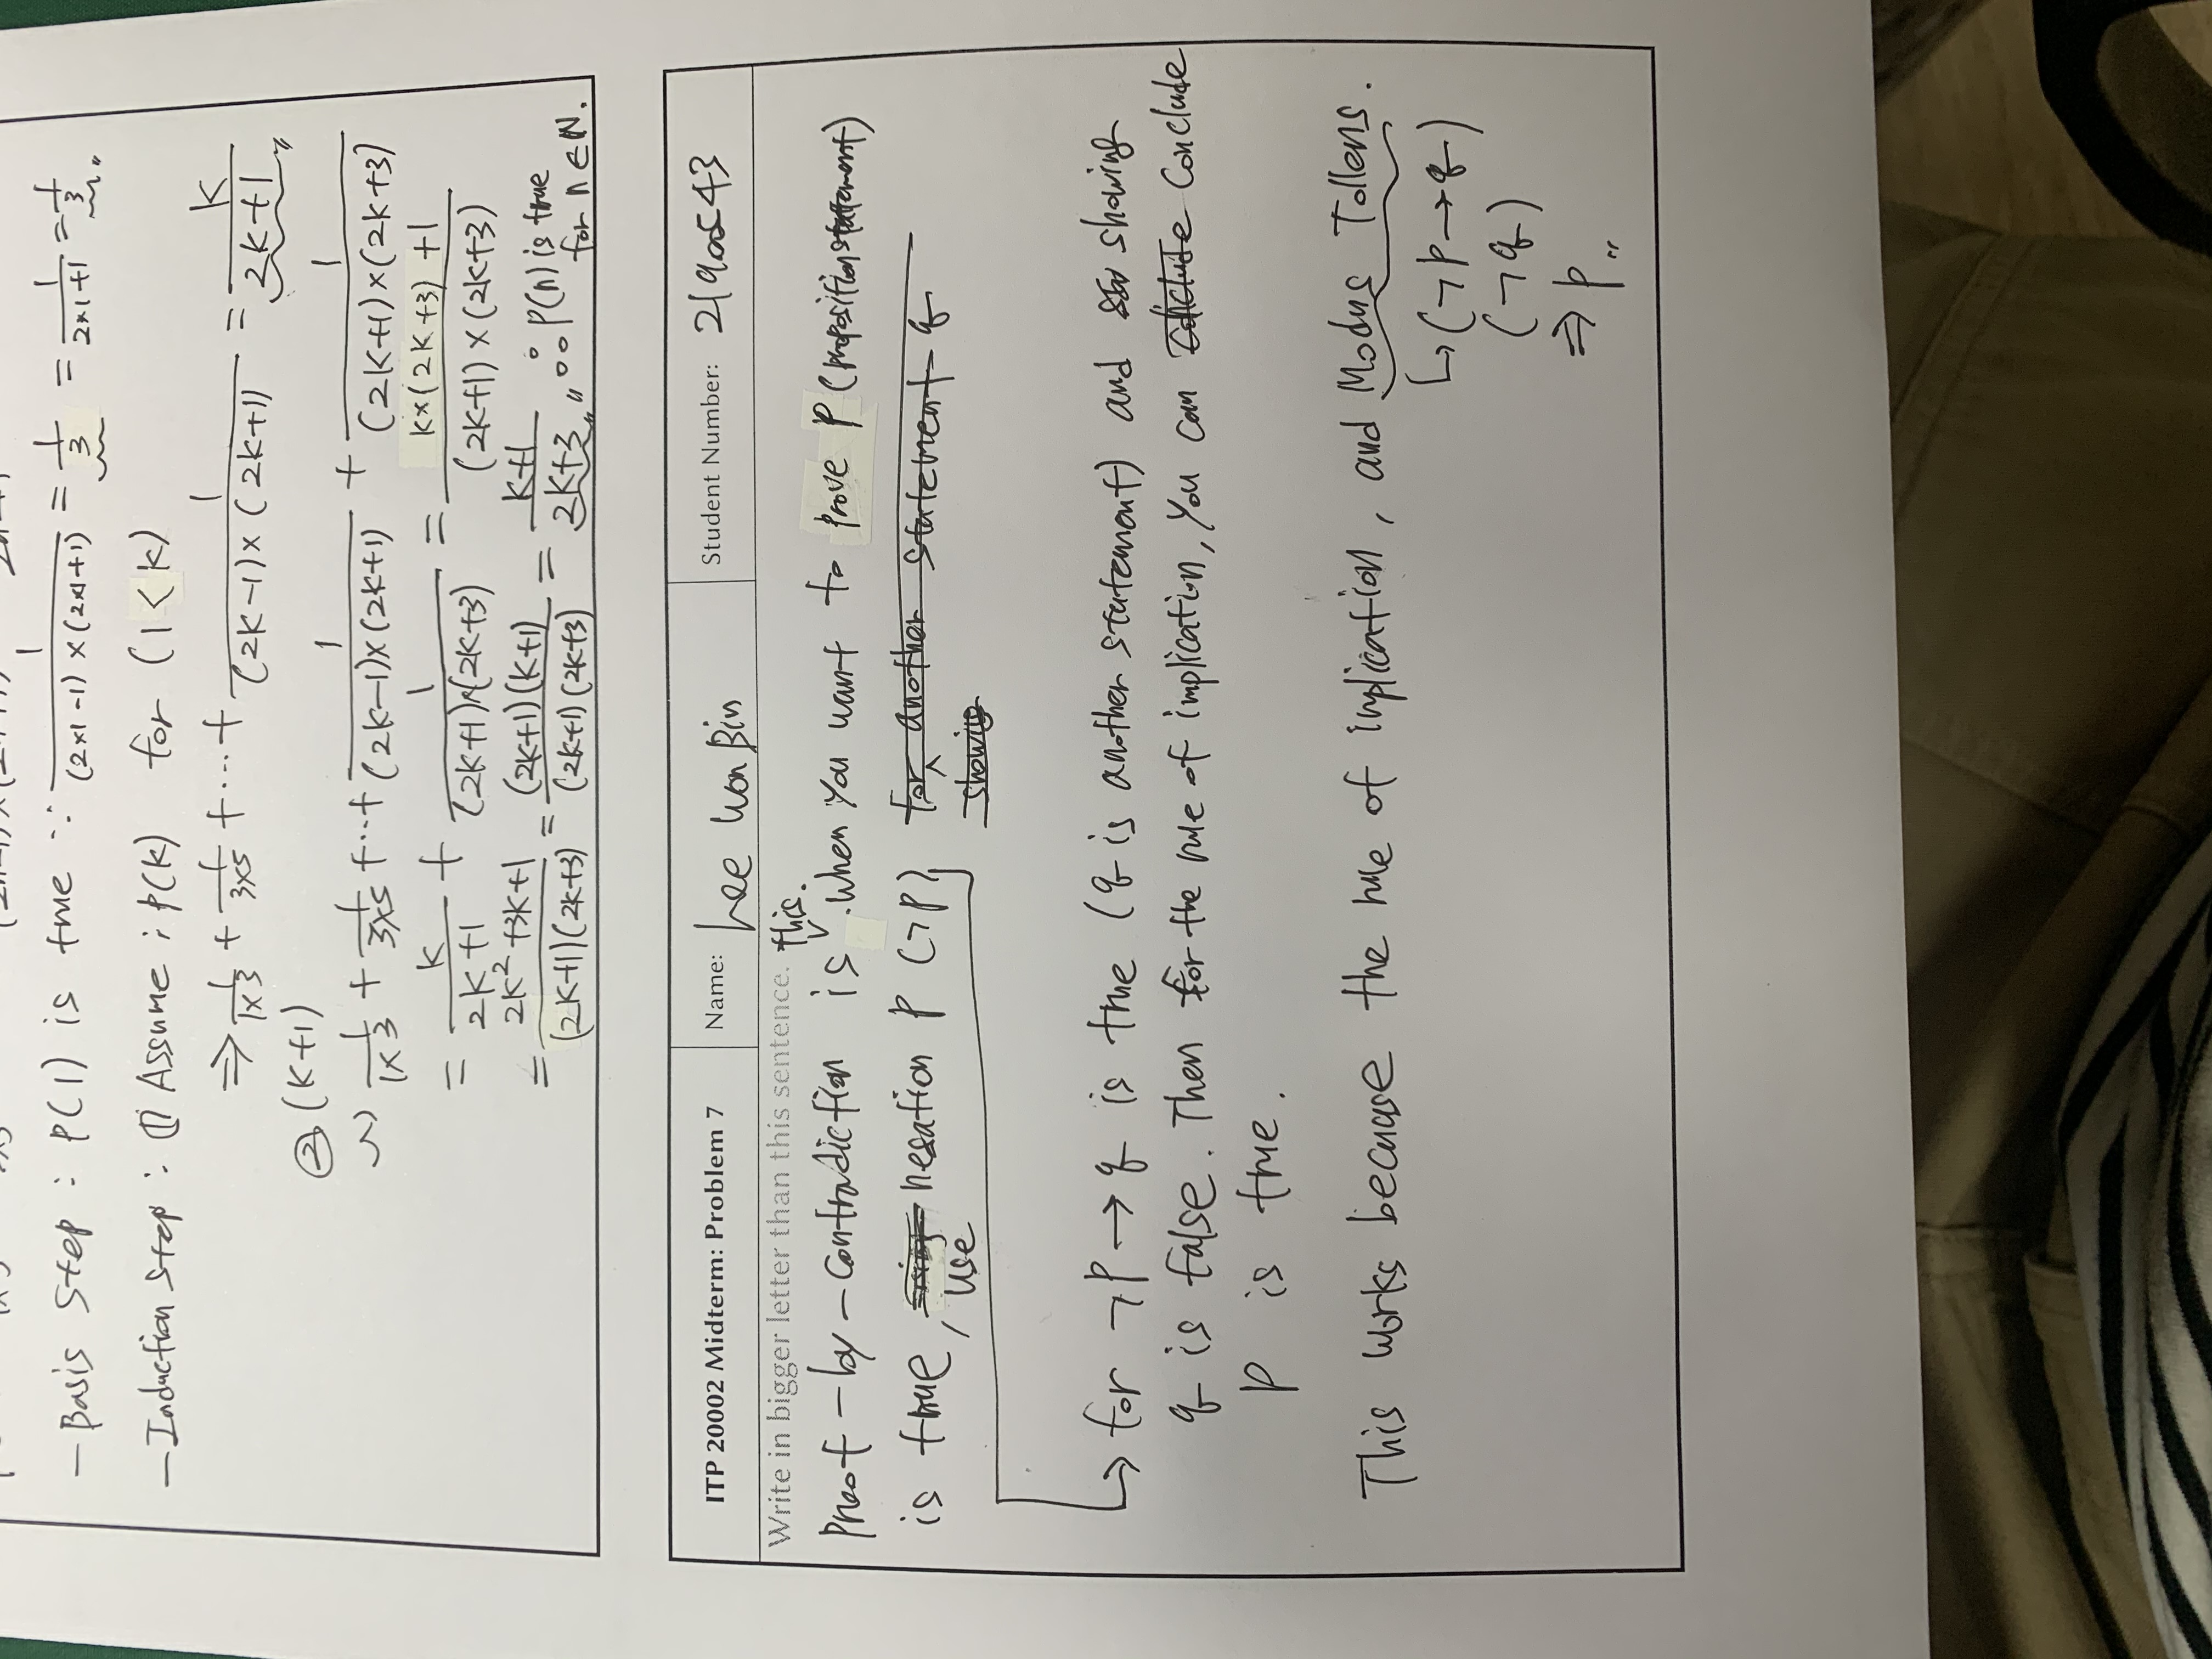 — Basis Step : P(1) is true ∵ 1/((2×1-1)×(2×1+1)) = 1/3 = 1/(2×1+1) = 1/3 〃
— Induction Step : ① Assume ; P(k) for (1 < k)
⇒ 1/(1×3) + 1/(3×5) + ... + 1/((2k-1)×(2k+1)) = k/(2k+1) 〃
② (k+1)
1/(1×3) + 1/(3×5) + ... + 1/((2k-1)×(2k+1)) + 1/((2k+1)×(2k+3))
= k/(2k+1) + 1/((2k+1)×(2k+3)) = (k×(2k+3)+1)/((2k+1)×(2k+3))
= (2k²+3k+1)/((2k+1)(2k+3)) = ((2k+1)(k+1))/((2k+1)(2k+3)) = (k+1)/(2k+3) 〃 ∴ P(n) is true
for n ∈ ℕ.
ITP 20002 Midterm: Problem 7 Name: Lee Won Bin Student Number:
Write in bigger letter than this sentence.
Proof-by-Contradiction is this. When you want to prove P (proposition statement)
is true, use negation P (¬P) for another statement q
showing
↳ for ¬P → q is true (q is another statement) and showing
q is false. Then for the rule of implication, you can conclude
P is true.
This works becuase the rule of implication, and Modus Tollens.
↳ (¬P → q)
(¬q)
⇒ P 〃